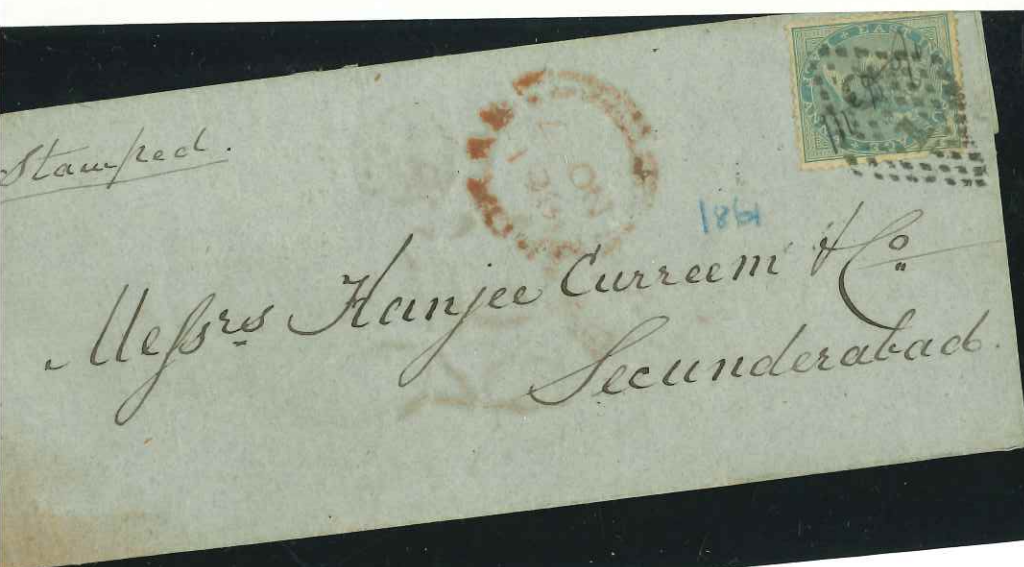 Stamped.
1861
Messrs Hanjee Curreem & Co
Secunderabad.